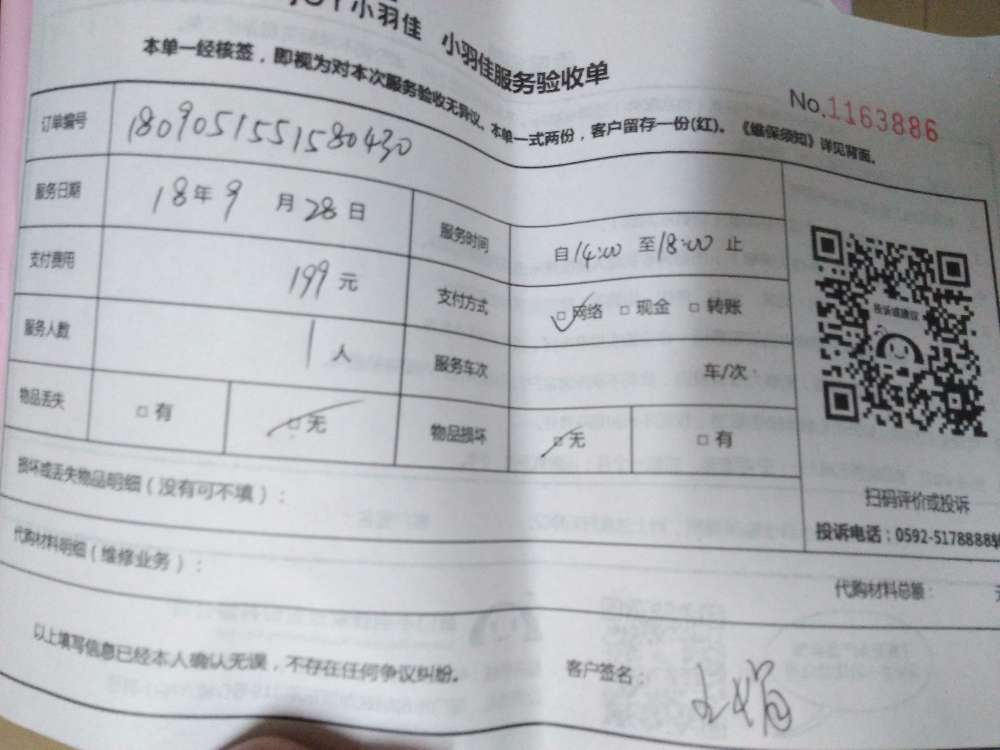 小羽佳 小羽佳服务验收单
本单一经核签，即视为对本次服务验收无异议、本单一式两份，客户留存一份(红)。《维保须知》详见背面。
No.1163886
订单编号 1809051551580430
服务日期 18年9月28日 服务时间 自14:00至18:00止
支付费用 199元 支付方式 □网络 □现金 □转账
服务人数 1人 服务车次 车/次：
物品丢失 □有 □无 物品损坏 □无 □有
投诉或建议
扫码评价或投诉
投诉电话：0592-5178888转
损坏或丢失物品明细（没有可不填）：
代购材料明细（维修业务）：
代购材料总额：
以上填写信息已经本人确认无误，不存在任何争议纠纷。
客户签名：